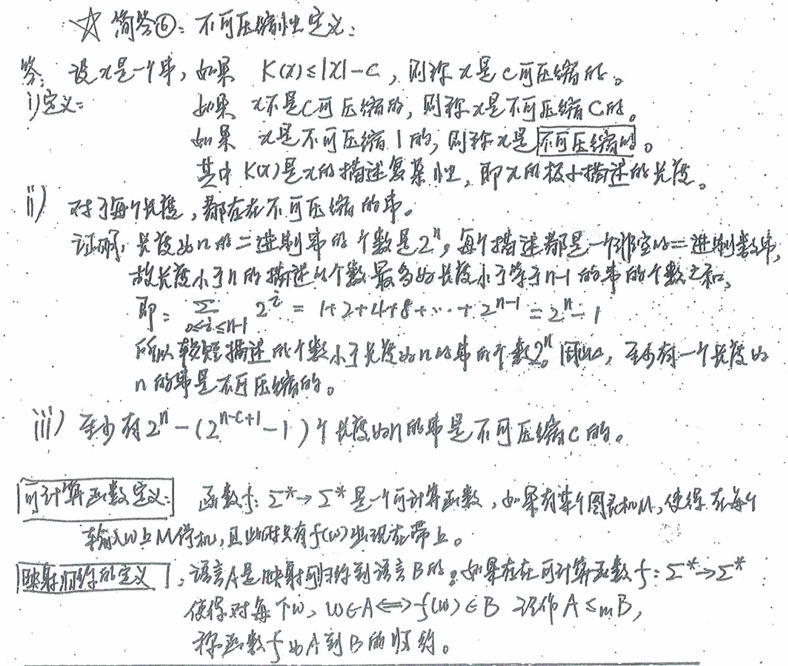 ☆ 简答⑥：不可压缩性定义：
答：设x是一个串，如果 K(x)≤|x|-c，则称x是c可压缩的。
i)定义： 如果 x不是c可压缩的，则称x是不可压缩c的。
如果 x是不可压缩1的，则称x是不可压缩的。
其中K(x)是x的描述复杂性，即x的极小描述的长度。
ii) 对于每个长度，都存在不可压缩的串。
证明：长度为n的二进制串的个数是2^n，每个描述都是一个非空的二进制数串，
故长度小于n的描述的个数最多为长度小于等于n-1的串的个数之和，
即：∑_{0≤i≤n-1} 2^i = 1+2+4+8+…+2^{n-1} = 2^n-1
所以较短描述的个数小于长度为n的串的个数2^n。因此，至少有一个长度为
n的串是不可压缩的。
iii) 至少有2^n-(2^{n-c+1}-1)个长度为n的串是不可压缩c的。
可计算函数定义： 函数f：Σ*→Σ*是一个可计算函数，如果有某个图灵机M，使得在每个
输入w上M停机，且此时只有f(w)出现在带上。
映射归约的定义，语言A是映射可归约到语言B的。如果存在可计算函数f：Σ*→Σ*
使得对每个w，w∈A⟺f(w)∈B 记作A≤mB，
称函数f为A到B的归约。